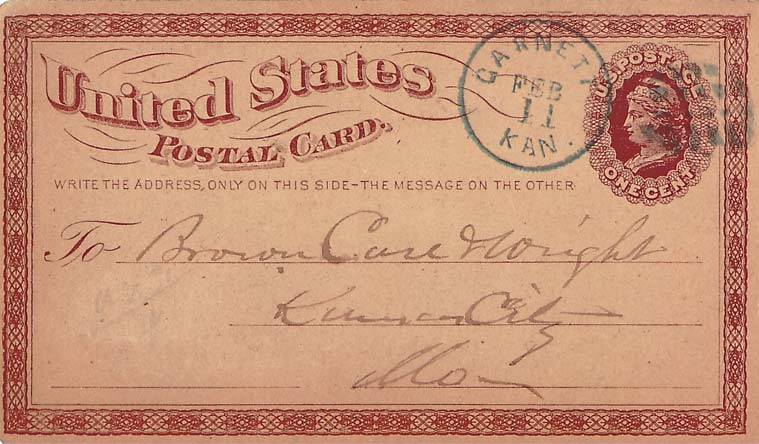 United States
POSTAL CARD.
GARNETT
FEB
11
KAN.
U.S. POSTAGE
ONE CENT
WRITE THE ADDRESS, ONLY ON THIS SIDE-THE MESSAGE ON THE OTHER
To Brown Case & Wright
Kansas City
Mo